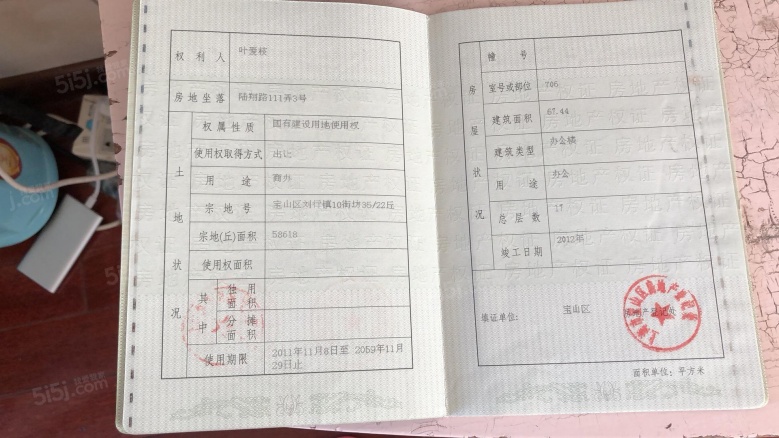 权利人 叶爱核
房地坐落 陆翔路111弄3号
土地状况
权属性质 国有建设用地使用权
使用权取得方式 出让
用途 商办
宗地号 宝山区刘行镇10街坊35/22丘
宗地(丘)面积 58618
使用权面积
其中
独用面积
分摊面积
使用期限 2011年11月8日至 2059年11月
29日止
房屋状况
幢号
室号或部位 706
建筑面积 67.44
建筑类型 办公楼
用途 办公
总层数 17
竣工日期 2012年
填证单位: 宝山区 房地产登记处
面积单位: 平方米
5i5j.com
5i5j.com